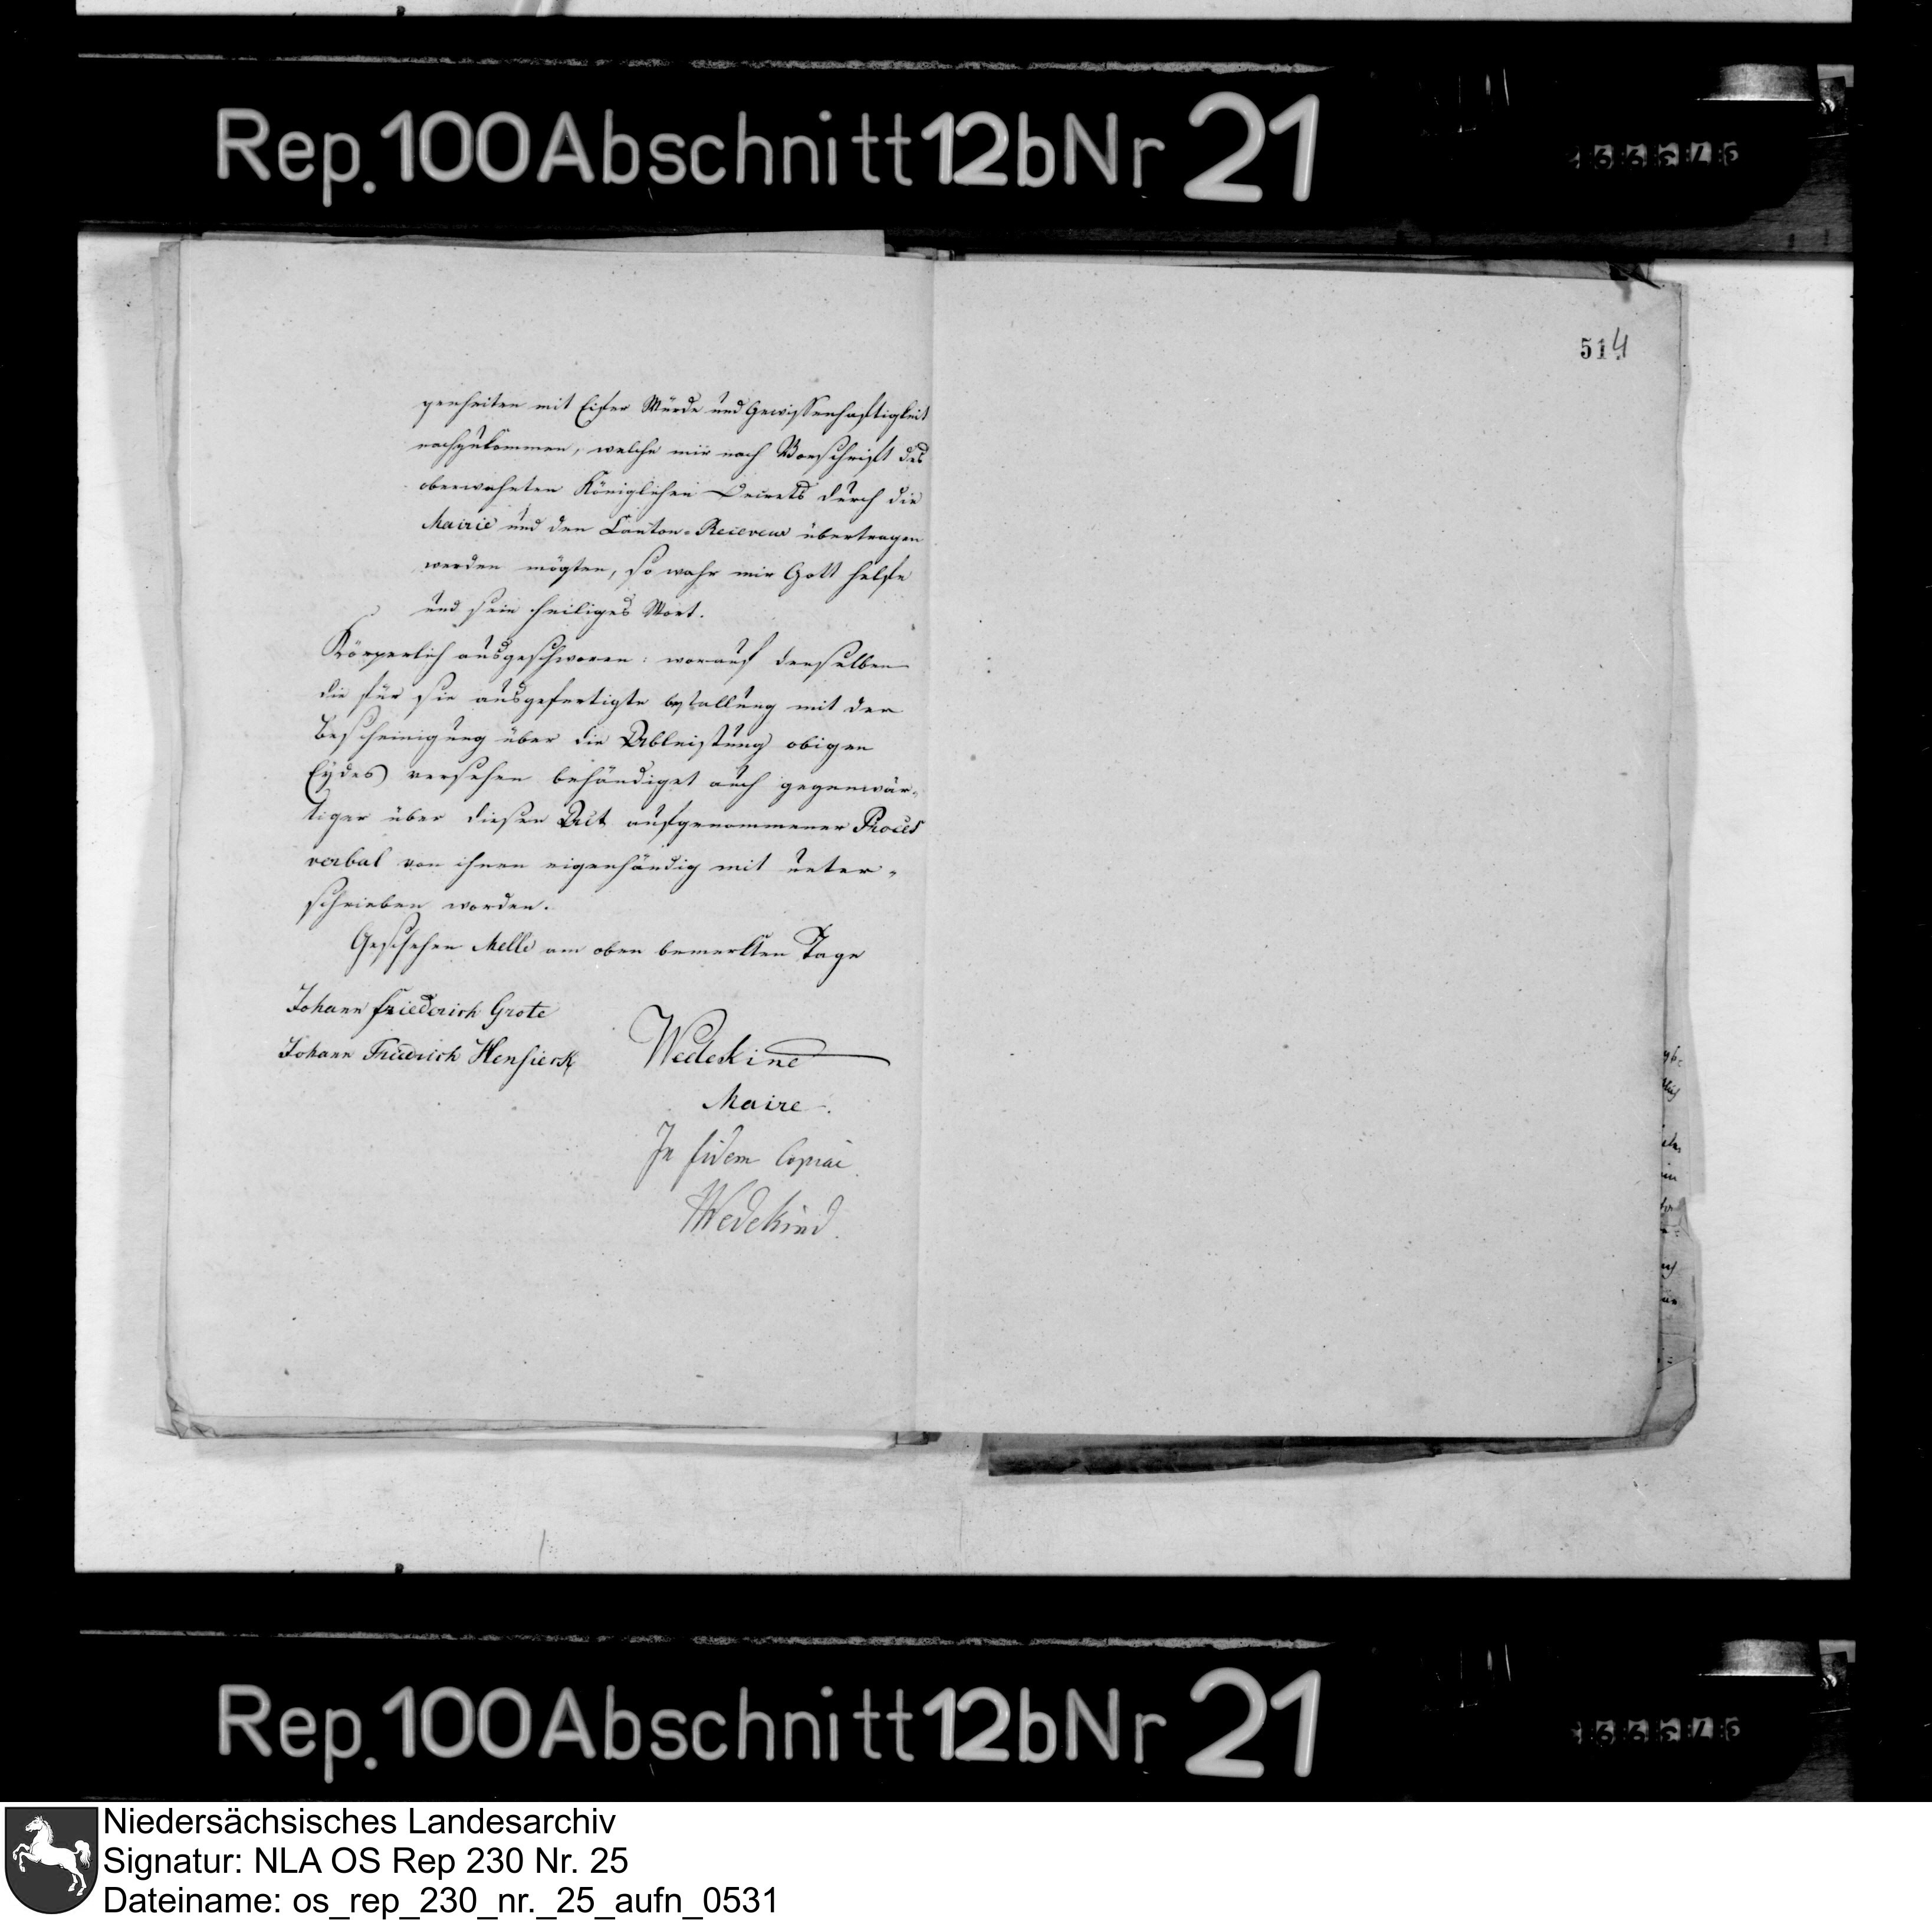 Rep. 100 Abschnitt 12b Nr 21
514
genheiten mit Eifer Würde und Gewissenhaftigkeit
nachzukommen, welche mir nach Vorschrift des
oberwähnten Königlichen Decrets durch die
Mairie und den Canton-Receveur übertragen
werden mögten, so wahr mir Gott helfe
und sein heiliges Wort.
Körperlich ausgeschworen: worauf denselben
die für sie ausgefertigte bestallung mit der
Bescheinigung über die Ableistung obigen
Eydes versehen behändiget auch gegenwär-
tiger über diesen Act aufgenommener Procés
verbal von ihnen eigenhändig mit unter-
schrieben worden.
Geschehen Melle am oben bemerkten Tage
Johann friederich Grote
Johann Friedrich Hensieck
Wedekind
Maire.
In fidem Copiae
Wedekind.
Rep. 100 Abschnitt 12b Nr 21
Niedersächsisches Landesarchiv
Signatur: NLA OS Rep 230 Nr. 25
Dateiname: os_rep_230_nr._25_aufn_0531